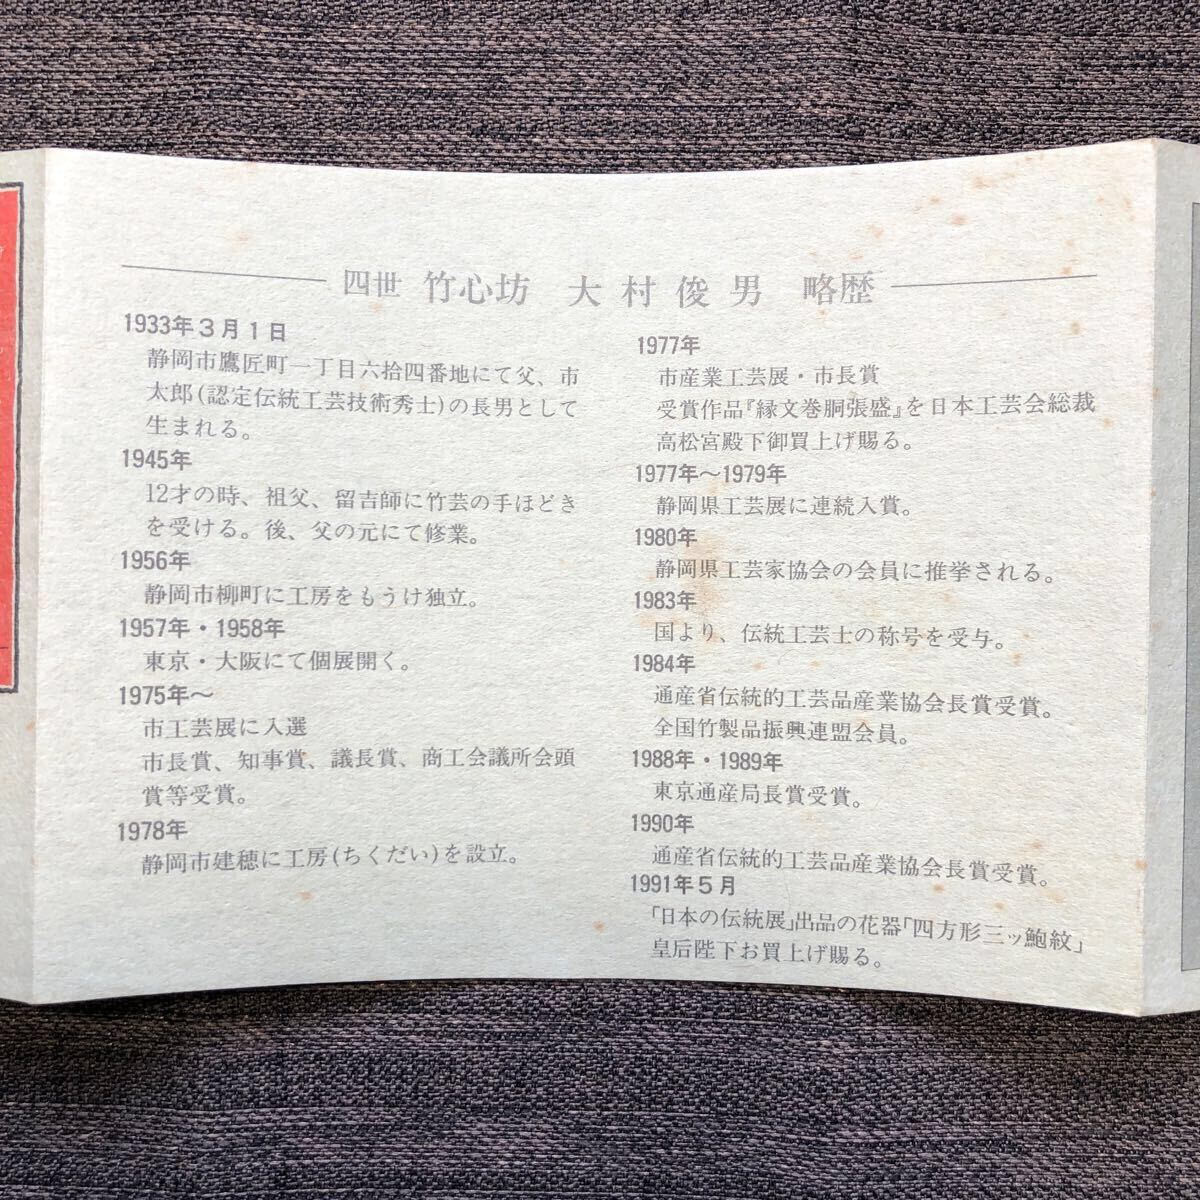 四世 竹心坊 大村俊男 略歴
1933年3月1日
静岡市鷹匠町一丁目六拾四番地にて父、市
太郎(認定伝統工芸技術秀士)の長男として
生まれる。
1945年
12才の時、祖父、留吉師に竹芸の手ほどき
を受ける。後、父の元にて修業。
1956年
静岡市柳町に工房をもうけ独立。
1957年・1958年
東京・大阪にて個展開く。
1975年〜
市工芸展に入選
市長賞、知事賞、議長賞、商工会議所会頭
賞等受賞。
1978年
静岡市建穂に工房(ちくだい)を設立。
1977年
市産業工芸展・市長賞
受賞作品『縁文巻胴張盛』を日本工芸会総裁
高松宮殿下御買上げ賜る。
1977年〜1979年
静岡県工芸展に連続入賞。
1980年
静岡県工芸家協会の会員に推挙される。
1983年
国より、伝統工芸士の称号を受与。
1984年
通産省伝統的工芸品産業協会長賞受賞。
全国竹製品振興連盟会員。
1988年・1989年
東京通産局長賞受賞。
1990年
通産省伝統的工芸品産業協会長賞受賞。
1991年5月
「日本の伝統展」出品の花器「四方形三ッ鮑紋」
皇后陛下お買上げ賜る。